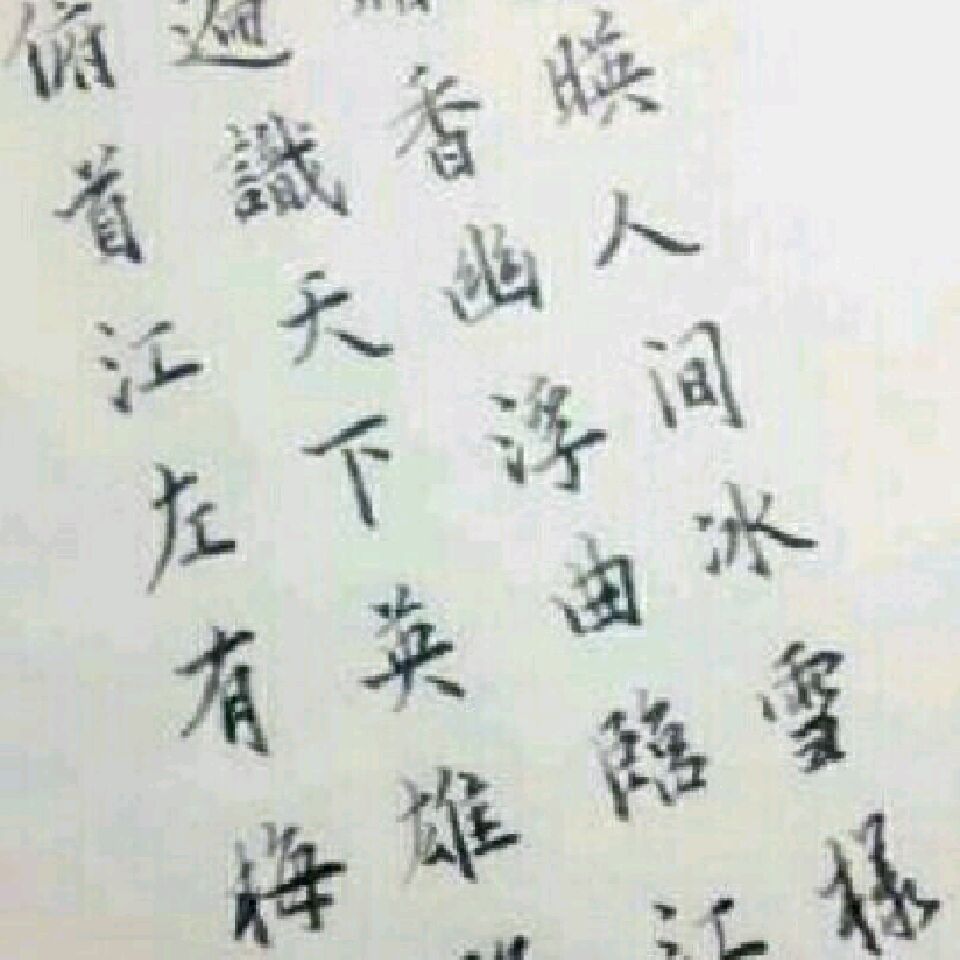 暎人间冰雪樣
香幽浮曲臨江
遍識天下英雄
俯首江左有梅